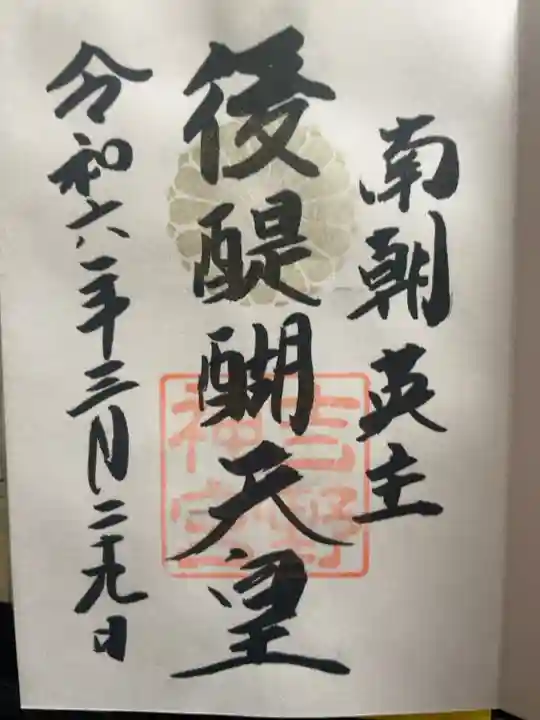 南朝英主
後醍醐天皇
吉野神宮
令和六年三月二十九日